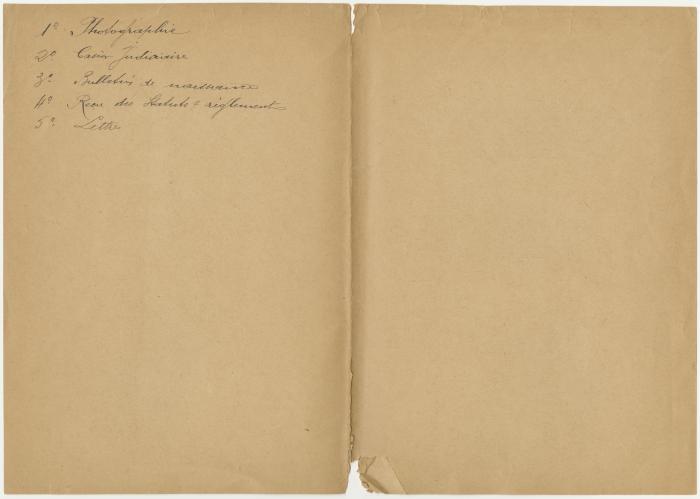 1º Photographie
2º Casier Judiciaire
3º Bulletins de naissance
4º Recu des Statuts & règlement
5º Lettre